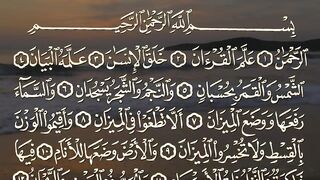 بِسْمِ اللَّهِ الرَّحْمَٰنِ الرَّحِيمِ
الرَّحْمَٰنُ ١ عَلَّمَ الْقُرْءَانَ ٢ خَلَقَ الْإِنسَٰنَ ٣ عَلَّمَهُ الْبَيَانَ ٤
الشَّمْسُ وَالْقَمَرُ بِحُسْبَانٍ ٥ وَالنَّجْمُ وَالشَّجَرُ يَسْجُدَانِ ٦ وَالسَّمَآءَ
رَفَعَهَا وَوَضَعَ الْمِيزَانَ ٧ أَلَّا تَطْغَوْا فِى الْمِيزَانِ ٨ وَأَقِيمُوا الْوَزْنَ
بِالْقِسْطِ وَلَا تُخْسِرُوا الْمِيزَانَ ٩ وَالْأَرْضَ وَضَعَهَا لِلْأَنَامِ ١٠ فِيهَا